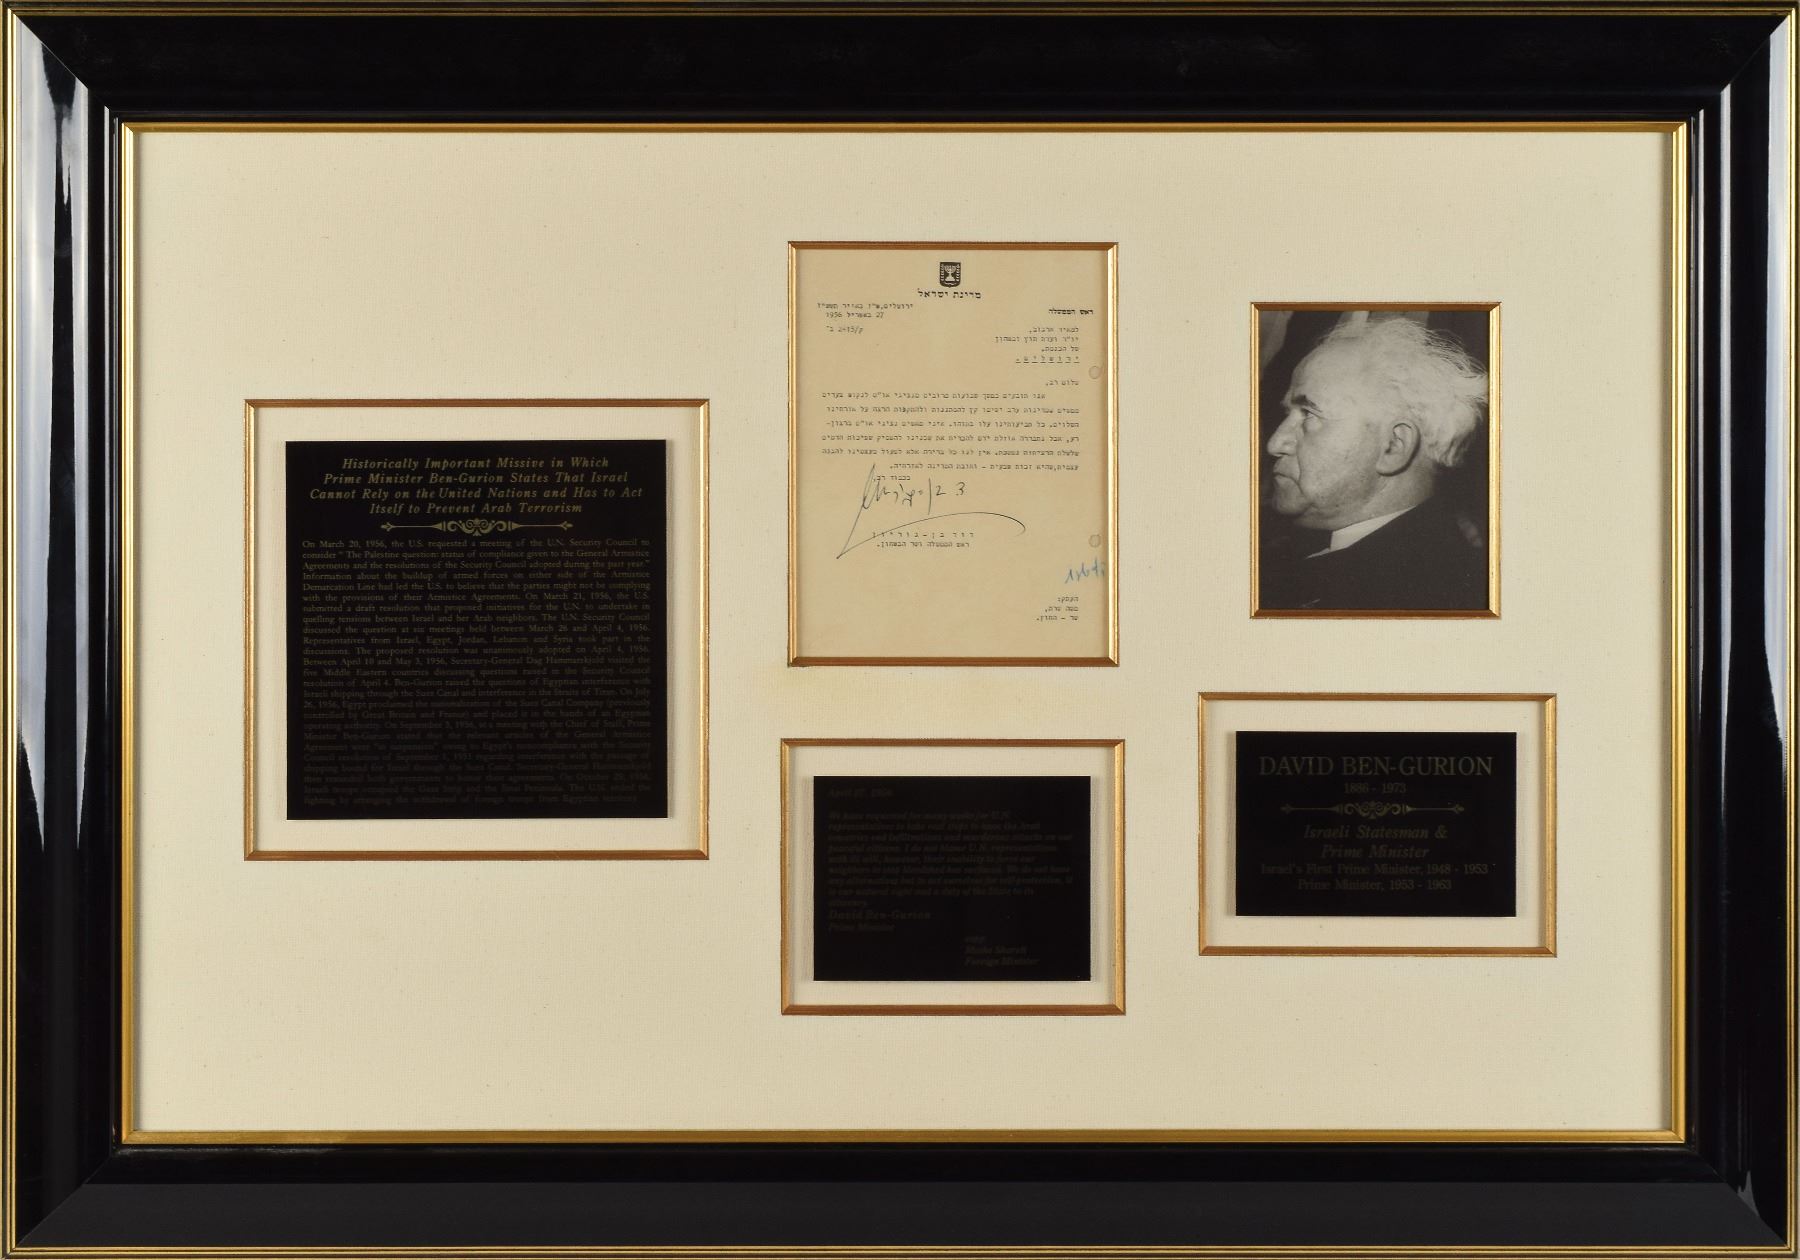 Historically Important Missive in Which
Prime Minister Ben-Gurion States That Israel
Cannot Rely on the United Nations and Has to Act
Itself to Prevent Arab Terrorism
On March 20, 1956, the U.S. requested a meeting of the U.N. Security Council to
consider " The Palestine question: status of compliance given to the General Armistice
Agreements and the resolutions of the Security Council adopted during the past year."
Information about the buildup of armed forces on either side of the Armistice
Demarcation Line had led the U.S. to believe that the parties might not be complying
with the provisions of their Armistice Agreements. On March 21, 1956, the U.S.
submitted a draft resolution that proposed initiatives for the U.N. to undertake in
quelling tensions between Israel and her Arab neighbors. The U.N. Security Council
discussed the question at six meetings held between March 26 and April 4, 1956.
Representatives from Israel, Egypt, Jordan, Lebanon and Syria took part in the
discussions. The proposed resolution was unanimously adopted on April 4, 1956.
Between April 10 and May 3, 1956, Secretary-General Dag Hammarskjold visited the
five Middle Eastern countries discussing questions raised in the Security Council
resolution of April 4. Ben-Gurion raised the questions of Egyptian interference with
Israeli shipping through the Suez Canal and interference in the Straits of Tiran. On July
26, 1956, Egypt proclaimed the nationalization of the Suez Canal Company (previously
controlled by Great Britain and France) and placed it in the hands of an Egyptian
operating authority. On September 3, 1956, at a meeting with the Chief of Staff, Prime
Minister Ben-Gurion stated that the relevant articles of the General Armistice
Agreement were "in suspension" owing to Egypt's noncompliance with the Security
Council resolution of September 1, 1951 regarding interference with the passage of
shipping bound for Israel through the Suez Canal. Secretary-General Hammarskjold
then reminded both governments to honor their agreements. On October 29, 1956,
Israeli troops occupied the Gaza Strip and the Sinai Peninsula. The U.N. ended the
fighting by arranging the withdrawal of foreign troops from Egyptian territory.
מדינת ישראל
ראש הממשלה
ירושלים, באייר תשט"ז
27 באפריל 1956
יו"ר ועדת חוץ ובטחון
של הכנסת,
ירושלים.
שלום רב,
אנו תובעים במשך שבועות מרובים מנציגי או"ם לנקוט צעדים
ממשיים שמדינות ערב ישימו קץ להסתננות ולהתקפות הרצח על אזרחינו
השלוים. כל תביעותינו עלו בתוהו. אינני מאשים נציגי או"ם ברצון-
רע, אבל נתבררה אזלת ידם להכריח את שכנינו להפסיק שפיכות הדמים
שלשלת הרציחות נמשכת. אין לנו כל ברירה אלא לפעול בעצמנו להגנה
עצמית, שהיא זכות טבעית - וחובת המדינה לאזרחיה.
בכבוד רב,
דוד בן-גוריון
ראש הממשלה ושר הבטחון.
העתק:
משה שרת,
שר - החוץ.
April 27, 1956
We have requested for many weeks for U.N.
representatives to take real steps to have the Arab
countries end infiltrations and murderous attacks on our
peaceful citizens. I do not blame U.N. representatives
with ill will, however, their inability to force our
neighbors to stop bloodshed has surfaced. We do not have
any alternatives but to act ourselves for self-protection. It
is our natural right and a duty of the State to its
citizenry.
David Ben-Gurion
Prime Minister
copy:
Moshe Sharett
Foreign Minister
DAVID BEN-GURION
1886 - 1973
Israeli Statesman &
Prime Minister
Israel's First Prime Minister, 1948 - 1953
Prime Minister, 1953 - 1963